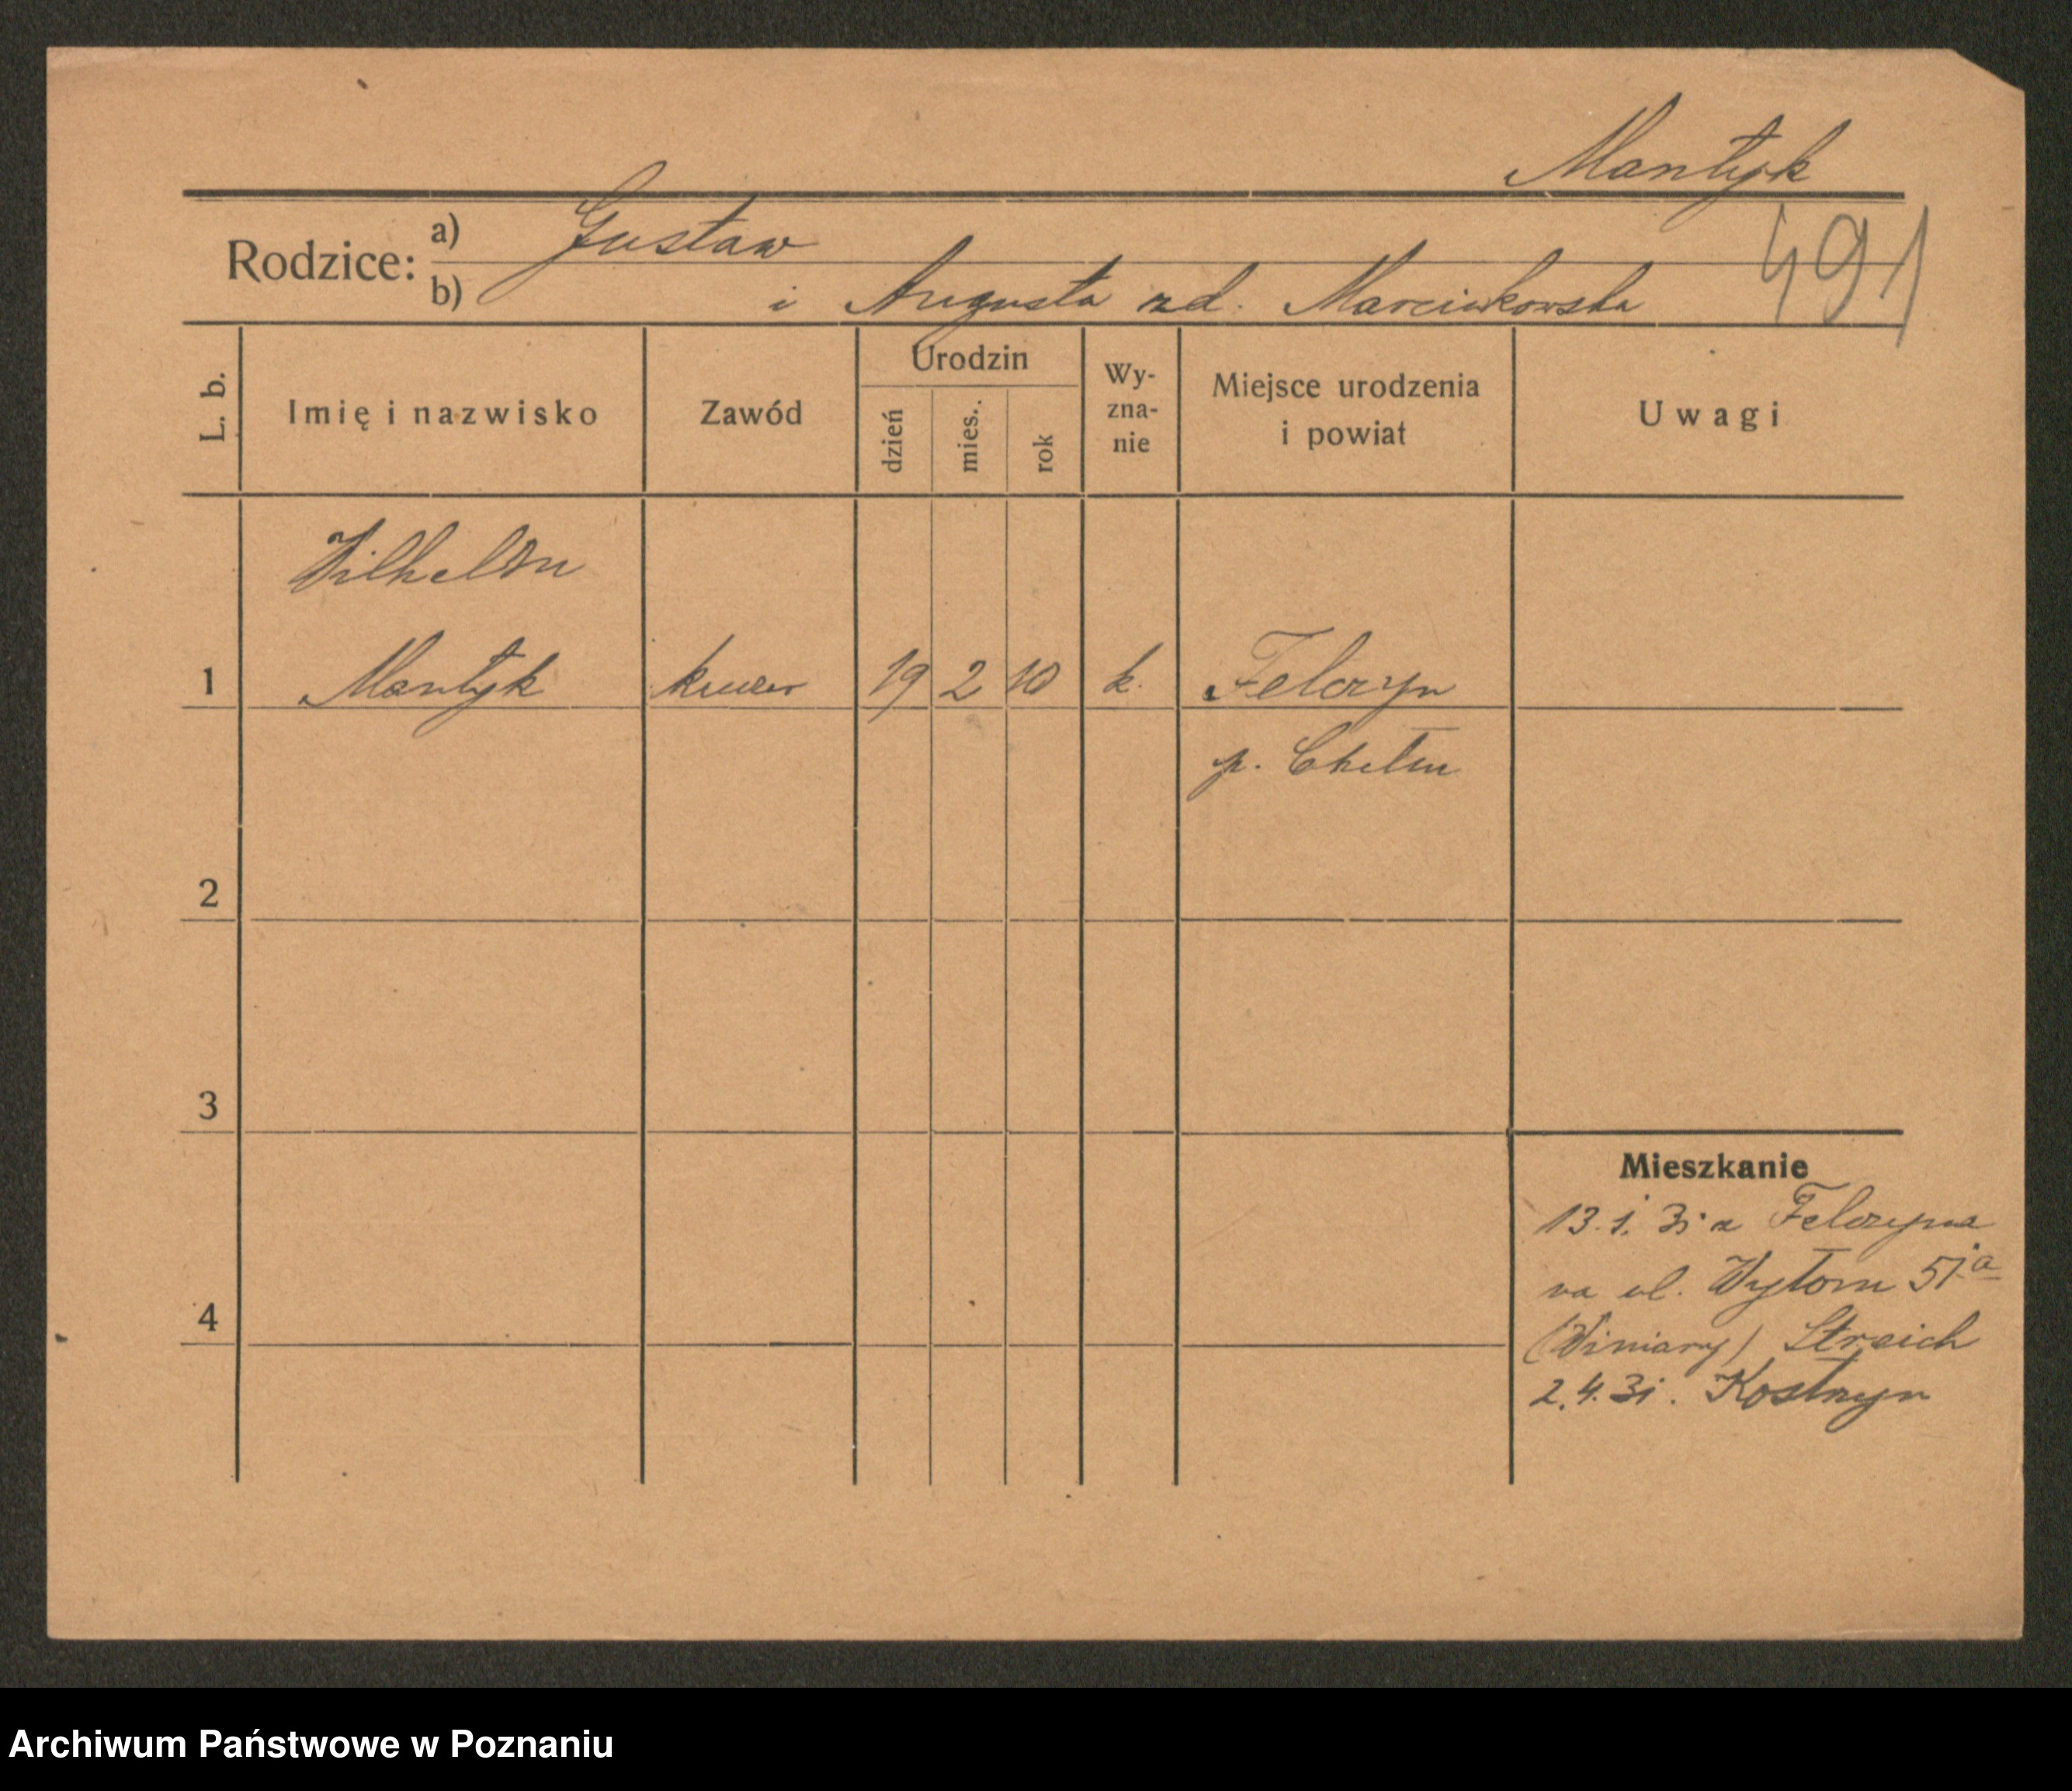 Mantyk
491
Rodzice: a) Gustaw
b) i Augusta zd. Marcinkowska
L. b. Imię i nazwisko Zawód Urodzin dzień mies. rok Wy-zna-nie Miejsce urodzenia i powiat Uwagi
Wilhelm
1 Mantyk 19 2 10 k. Felczyn
p. Chełm
2
3
Mieszkanie
13.1.31 z Felczyna
na ul. Wyłom 51a
4
(Winiary) Streich
2.4.31. Kostrzyn
Archiwum Państwowe w Poznaniu